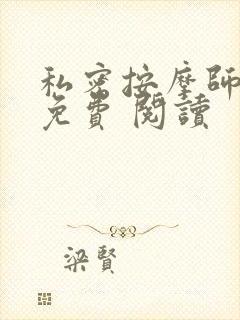 私密按摩師
免費 閱讀
梁賢